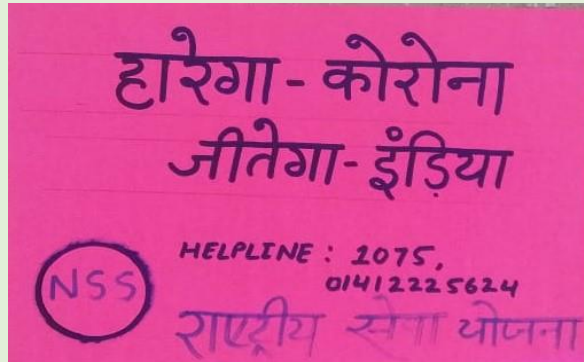 हारेगा - कोरोना
जीतेगा - इंड़िया
HELPLINE : 1075,
01412225624
NSS
राष्ट्रीय सेवा योजना